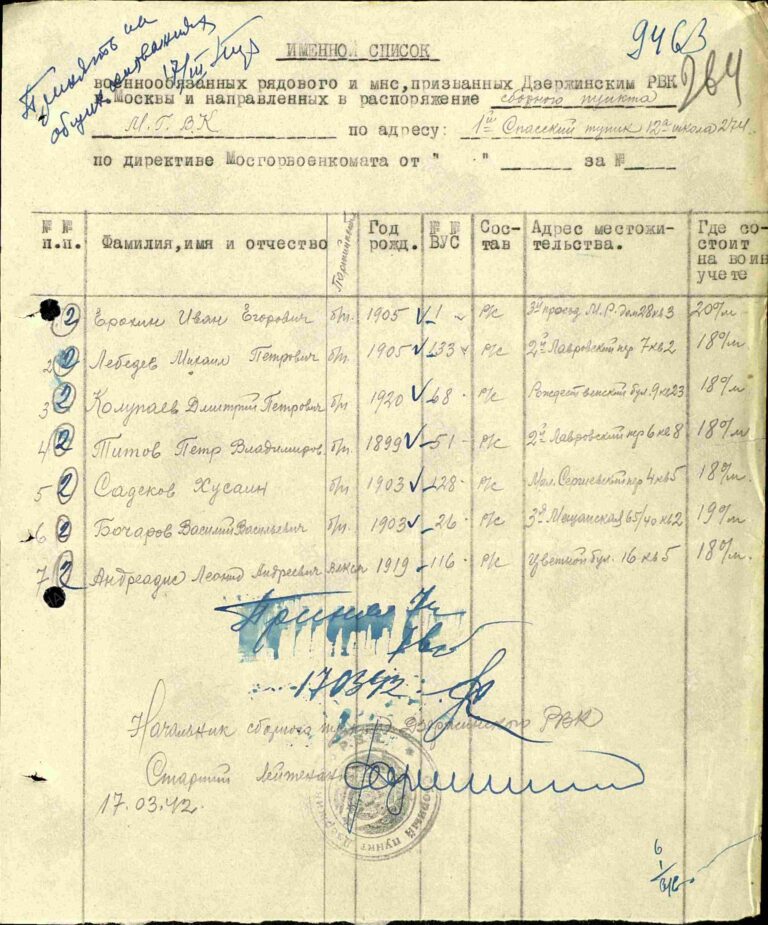 Принять на
общих основаниях
17/III
9463
264
ИМЕННОЙ СПИСОК
военнообязанных рядового и мнс, призванных Дзержинским РВК
Москвы и направленных в распоряжение сборного пункта
М.Г.В.К по адресу: 1й Спасский тупик 12а школа 274
по директиве Мосгорвоенкомата от " " за №
№ № п.п. Фамилия, имя и отчество Партийный Год рожд. № № ВУС Состав Адрес местожительства. Где состоит на воин учете
2 Ерохин Иван Егорович б/п. 1905 1 Р/с 3й проезд М.Р. дом 28 кв 3 20 о/м.
2 2 Лебедев Михаил Петрович б/п. 1905 133 Р/с 2й Лавровский пер 7 кв 2 18 о/м.
3 2 Колупаев Дмитрий Петрович б/п 1920 68 Р/с Рождественский бул. 9 кв 23 18 о/м
4 2 Титов Петр Владимиров б/п. 1899 51 Р/с 2й Лавровский пер 6 кв 8 18 о/м
5 2 Садеков Хусаин б/п 1903 128 Р/с Мал. Сергиевский пер 4 кв 5 18 о/м.
6 2 Бочаров Василий Васильевич б/п 1903 26 Р/с 3я Мещанская 65/40 кв 2 19 о/м
7 2 Андреадис Леонид Андреевич 1919 116 Р/с Цветной бул. 16 кв 5 18 о/м.
Принял 7
17.03.42
Начальник сборного Дзержинского РВК
Старший Лейтенант
17.03.42.
Сборный пункт
6